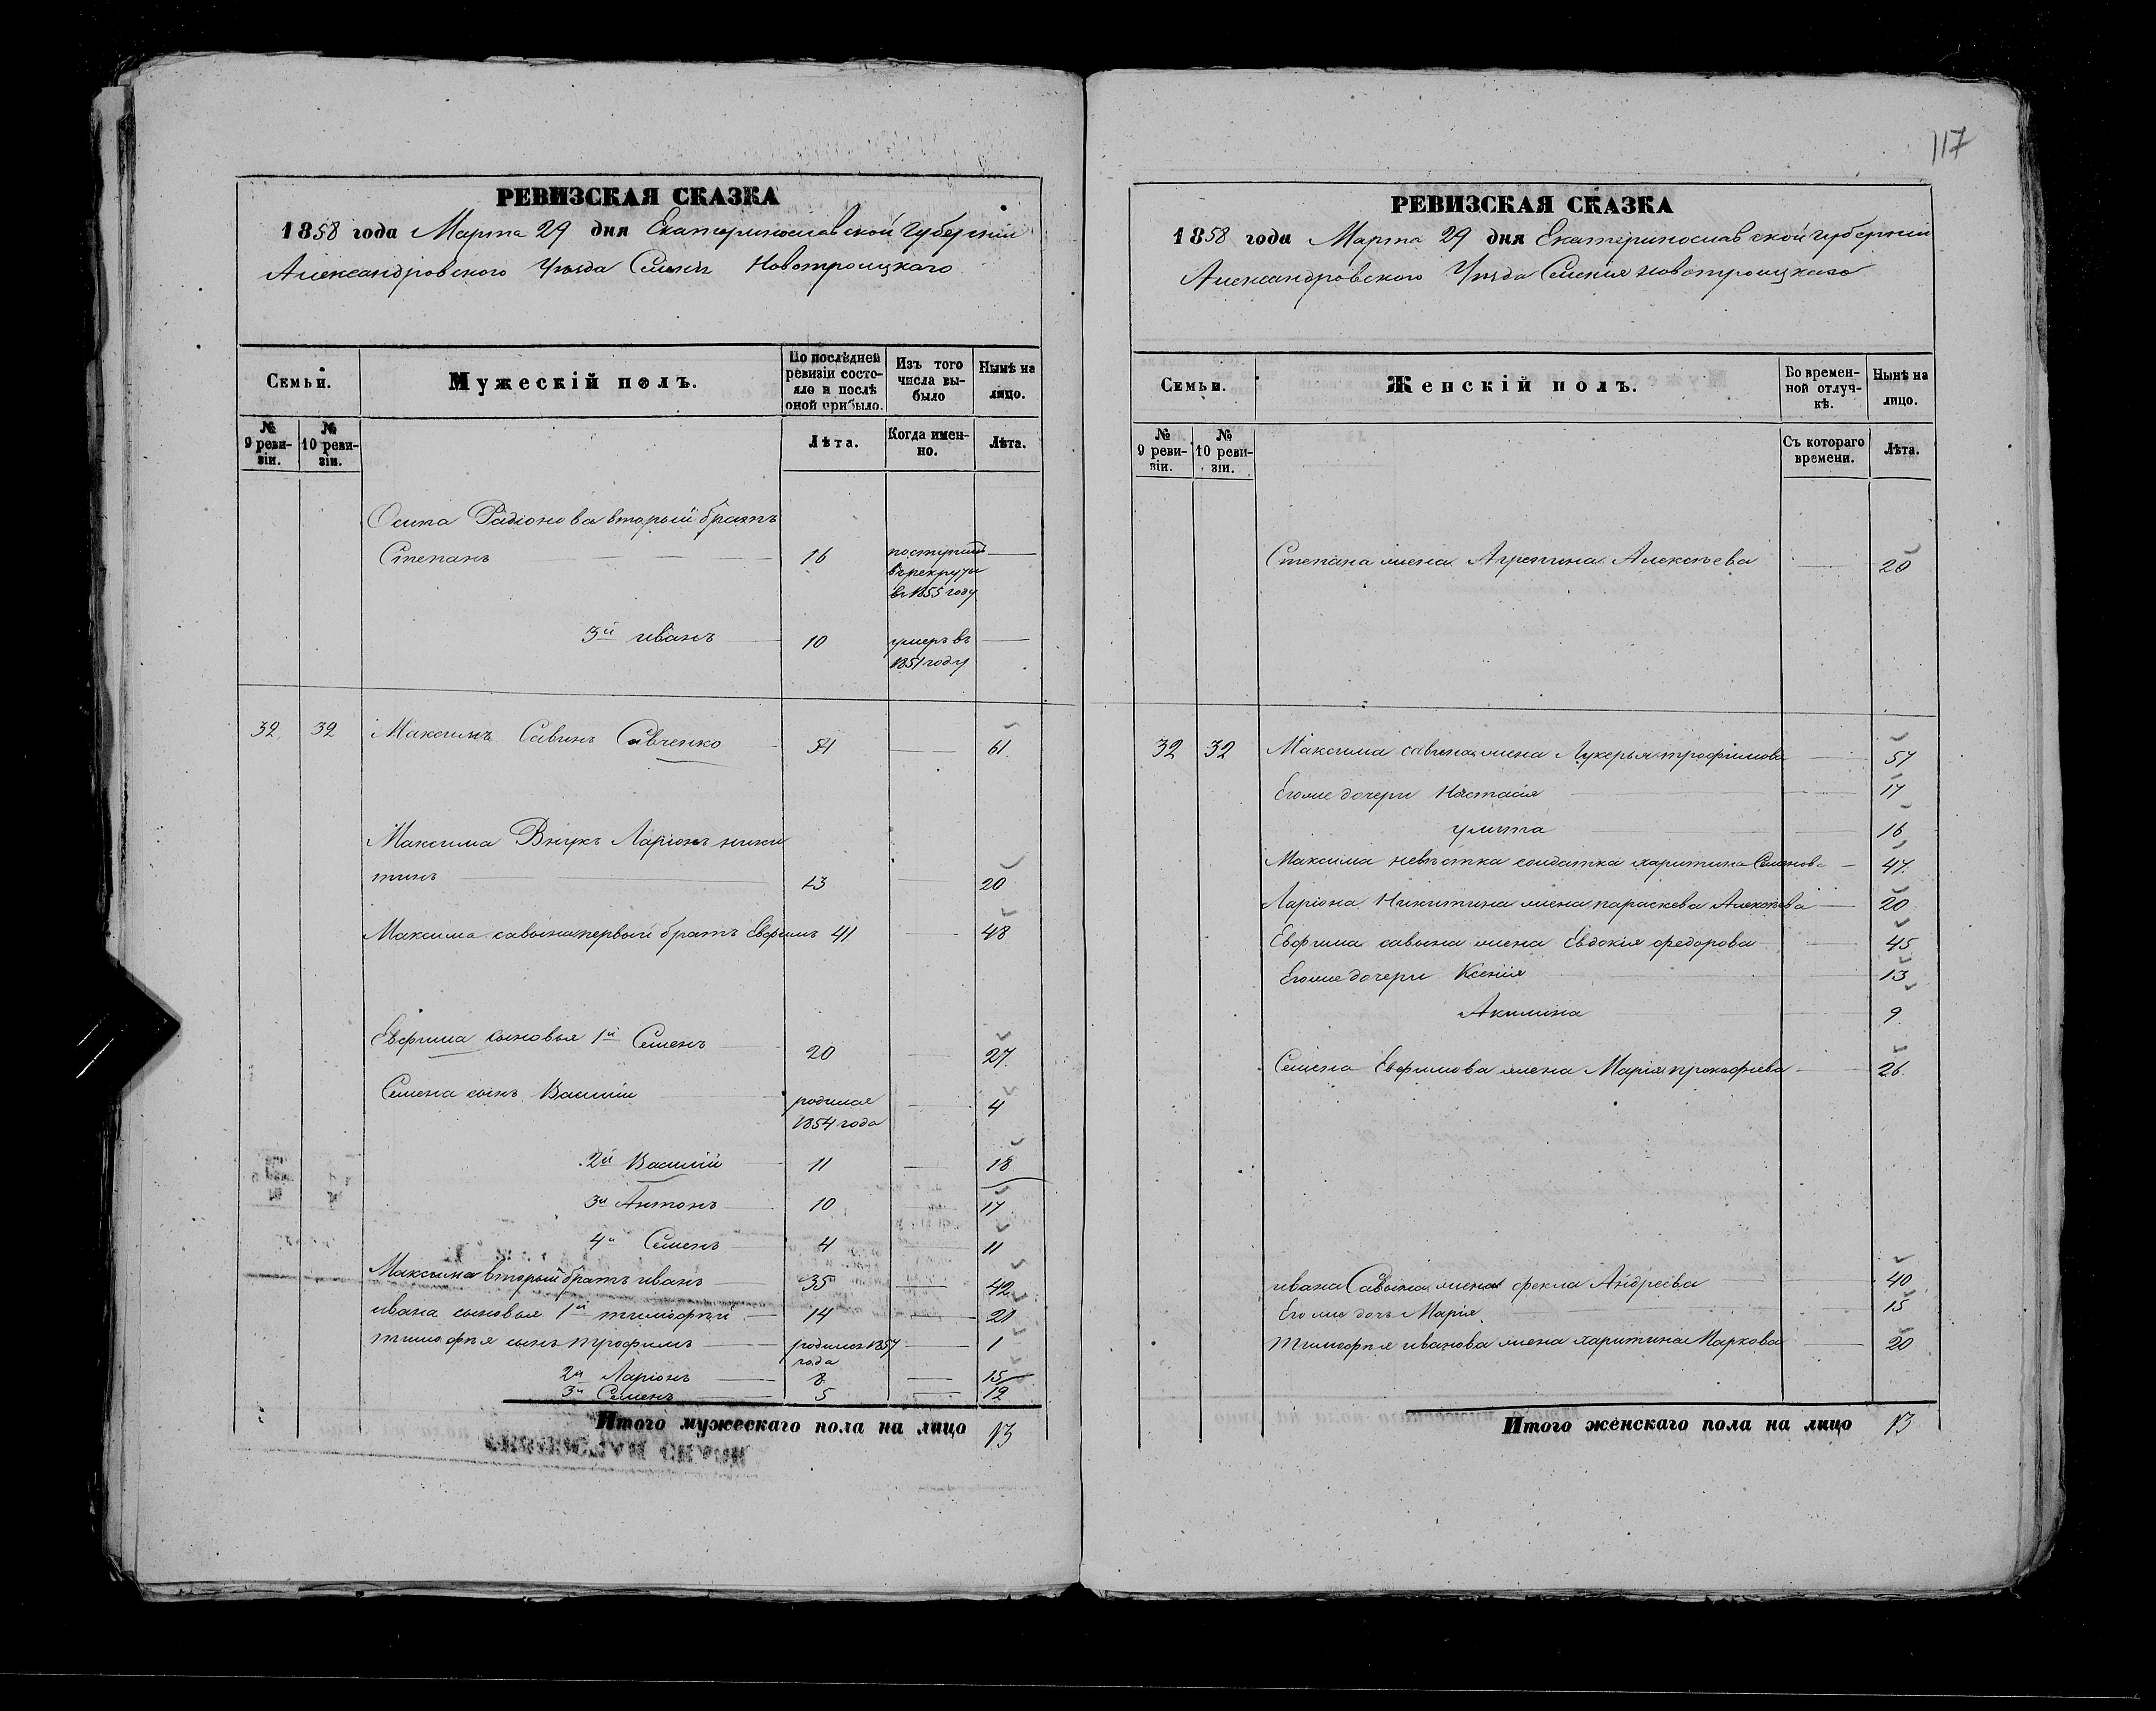 РЕВИЗСКАЯ СКАЗКА
1858 года Марта 29 дня Екатеринославской Губерніи
Александровского Уѣзда Селенія Новотроицкаго
Семьи.
Мужескій полъ.
По послѣдней ревизіи состояло и послѣ оной прибыло.
Изъ того числа выбыло
Нынѣ на лицо.
№ 9 ревизіи.
№ 10 ревизіи.
Лѣта.
Когда именно.
Лѣта.
Осипа Радіонова вторый братъ
Степанъ 16 поступилъ
въ рекруты
въ 1855 году
3й иванъ 10 умеръ въ
1851 году
32 32 Максимъ Савинъ Савченко 54 61
Максима Внукъ Ларіонъ ники
тинъ 13 20
Максима савына первый братъ Евфимъ 41 48
Евфима сыновья 1й Семенъ 20 27
Семена сынъ Василій родился
1854 года 4
2й Василій 11 18
3й Антонъ 10 17
4й Семенъ 4 11
Максима вторый братъ иванъ 35 42
ивана сыновья 1й тимофѣй 14 21
тимофѣя сынъ трофимъ родился 1857
года 1
2й Ларіонъ 8 15
3й Семенъ 5 12
Итого мужескаго пола на лицо 13
117
РЕВИЗСКАЯ СКАЗКА
1858 года Марта 29 дня Екатеринославской губерніи
Александровского Уѣзда Селенія новотроицкаго
Семьи.
Женскій полъ.
Во временной отлучкѣ.
Нынѣ на лицо.
№ 9 ревизіи.
№ 10 ревизіи.
Съ котораго времени.
Лѣта.
Степана жена Агрепина Алексѣева 20
32 32 Максима савина жена Лукерья трофимова 57
Егоже дочери Настасія 17
улита 16
Максима невѣстка солдатка харитина Семенова 47
Ларіона Никитина жена параскева Алексѣева 20
Евфима савына жена Евдокія федорова 45
Егоже дочери Ксенія 13
Акилина 9
Семена Евфимова жена Марія прокофиева 26
ивана Савына жена фекла Андреева 40
Его же дочь Марія 15
тимофѣя иванова жена харитина Маркова 20
Итого женскаго пола на лицо 13